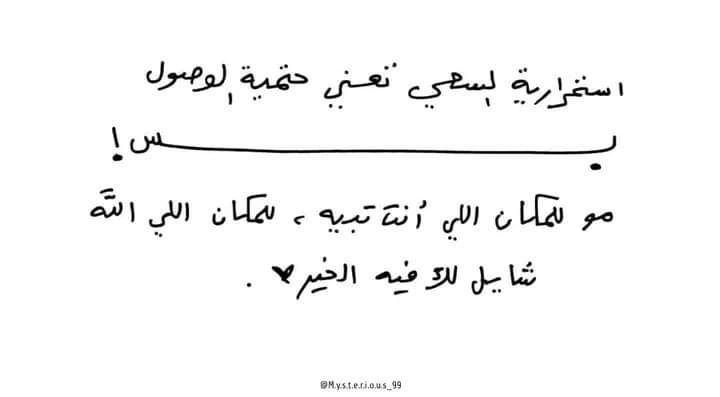 استمرارية السعي تعني حتمية الوصول
بــــــــــــس!
مو للمكان اللي أنت تبيه، للمكان اللي الله
شايل لك فيه الخير♥.
@M.y.s.t.e.r.i.o.u.s_99